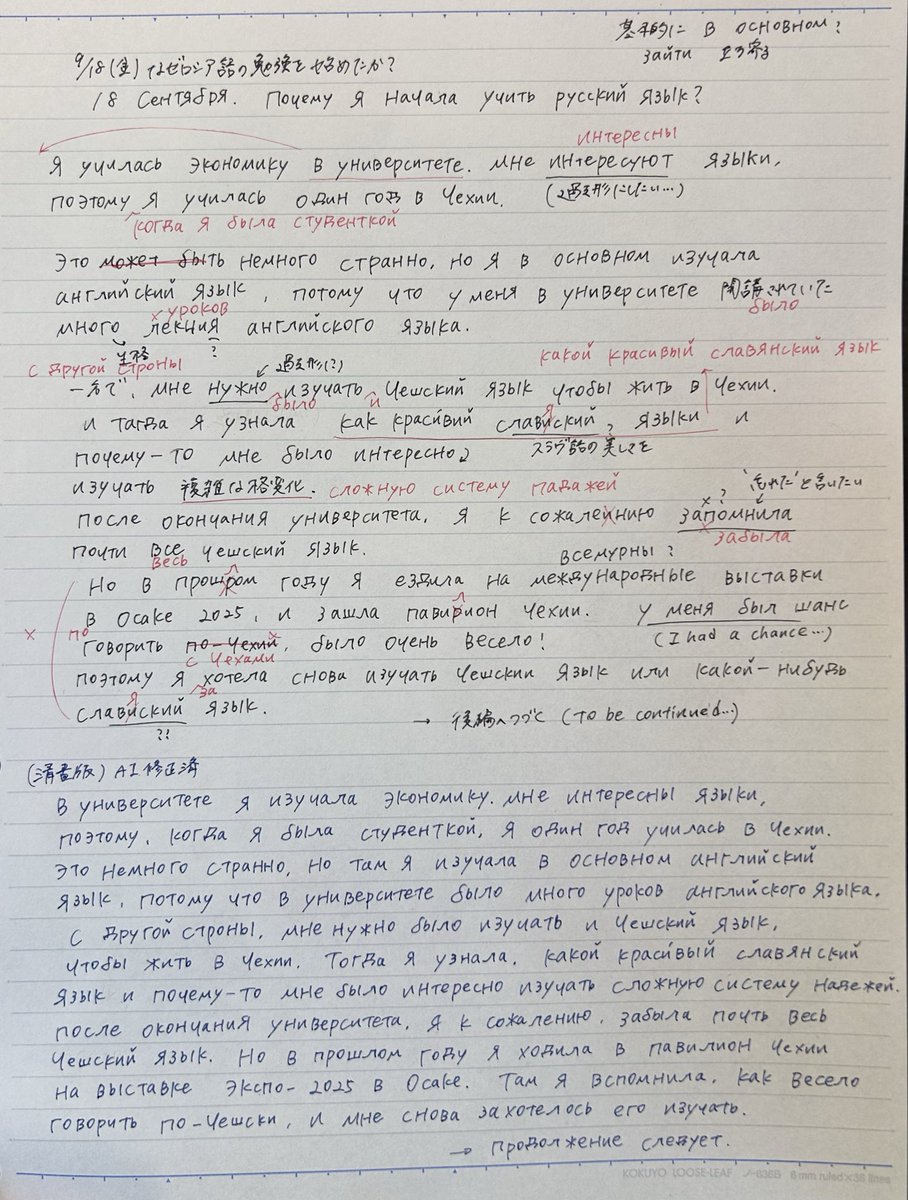 基本的に в основном?
зайти 立ち寄る
9/18(金) なぜロシア語の勉強を始めたか?
18 Сентября. Почему я начала учить русский язык?
интересны
Я училась экономику в университете. мне интересуют языки,
поэтому я училась один год в Чехии. (過去形にしたい…)
когда я была студенткой
Это может быть немного странно, но я в основном изучала
английский язык, потому что у меня в университете 開講されていた
уроков было
много лекция английского языка.
生格 ?
с другой строны какой красивый славянский язык
一方で, мне нужно изучать Чешский язык чтобы жить в Чехии.
過去形に(?)
было и
и тагда я узнала как красивий слависkий, языки и
я
スラヴ語の美しさを
почему-то мне было интересно
изучать 複雑な格変化. сложную систему падажей
? "忘れた"と言いたい
после окончания университета, я к сожалеинию запомнила
забыла
почти все чешский язык.
весь всемурны?
Но в прошром году я ездила на международные выставки
л
в Осаке 2025, и зашла павирион Чехии. у меня был шанс
л
по (I had a chance…)
говорить по-чехий, было очень весело!
с Чехами
поэтому я хотела снова изучать чешский язык или какой-нибудь
за
я
слависkий язык.
?! → 後編へつづく (To be continued…)
(清書版) AI修正済
В университете я изучала экономику. мне интересны языки,
поэтому, когда я была студенткой, я один год училась в Чехии.
Это немного странно, но там я изучала в основном английский
язык, потому что в университете было много уроков английского языка.
С другой строны, мне нужно было изучать и Чешский язык,
чтобы жить в Чехии. Тогда я узнала, какой красивый славянский
язык и почему-то мне было интересно изучать сложную систему падежей.
после окончания университета, я к сожалению, забыла почть весь
Чешский язык. Но в прошлом году я ходила в павилион Чехии
на выставке Экспо-2025 в Осаке. Там я вспомнила, как весело
говорить по-Чешски, и мне снова захотелось его изучать.
→ продолжение следует.
KOKUYO LOOSE-LEAF ノ-836B 6 mm ruled×36 lines